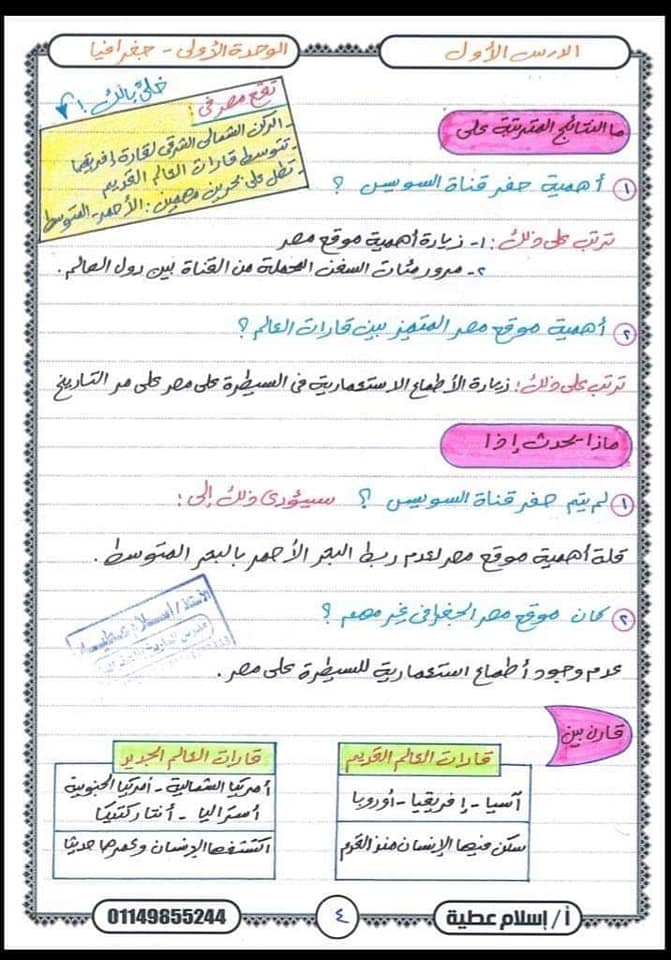 الدرس الأول
الوحدة الأولى - جغرافيا
خلى بالك !
تقع مصر فى :
- الركن الشمالى الشرقى لقارة إفريقيا
- تتوسط قارات العالم القديم
- تطل على بحرين مهمين : الأحمر - المتوسط
ما النتائج المترتبة على
١ أهمية حفر قناة السويس ؟
ترتب على ذلك : ١- زيادة أهمية موقع مصر
٢- مرور مئات السفن المحملة من القناة بين دول العالم .
٢ أهمية موقع مصر المتميز بين قارات العالم ؟
ترتب على ذلك : زيادة الأطماع الاستعمارية فى السيطرة على مصر على مر التاريخ
ماذا يحدث إذا
١ لم يتم حفر قناة السويس ؟ سيؤدى ذلك إلى :
قلة أهمية موقع مصر لعدم ربط البحر الأحمر بالبحر المتوسط .
٢ كان موقع مصر الجغرافى غير مهم ؟
عدم وجود أطماع استعمارية للسيطرة على مصر .
الأستاذ / إسلام عطية
قارن بين
قارات العالم القديم
آسيا - إفريقيا - أوروبا
سكن فيها الإنسان منذ القدم
قارات العالم الجديد
أمريكا الشمالية - أمريكا الجنوبية
أستراليا - أنتاركتيكا
اكتشفها الإنسان وعمرها حديثا
أ / إسلام عطية
٤
01149855244